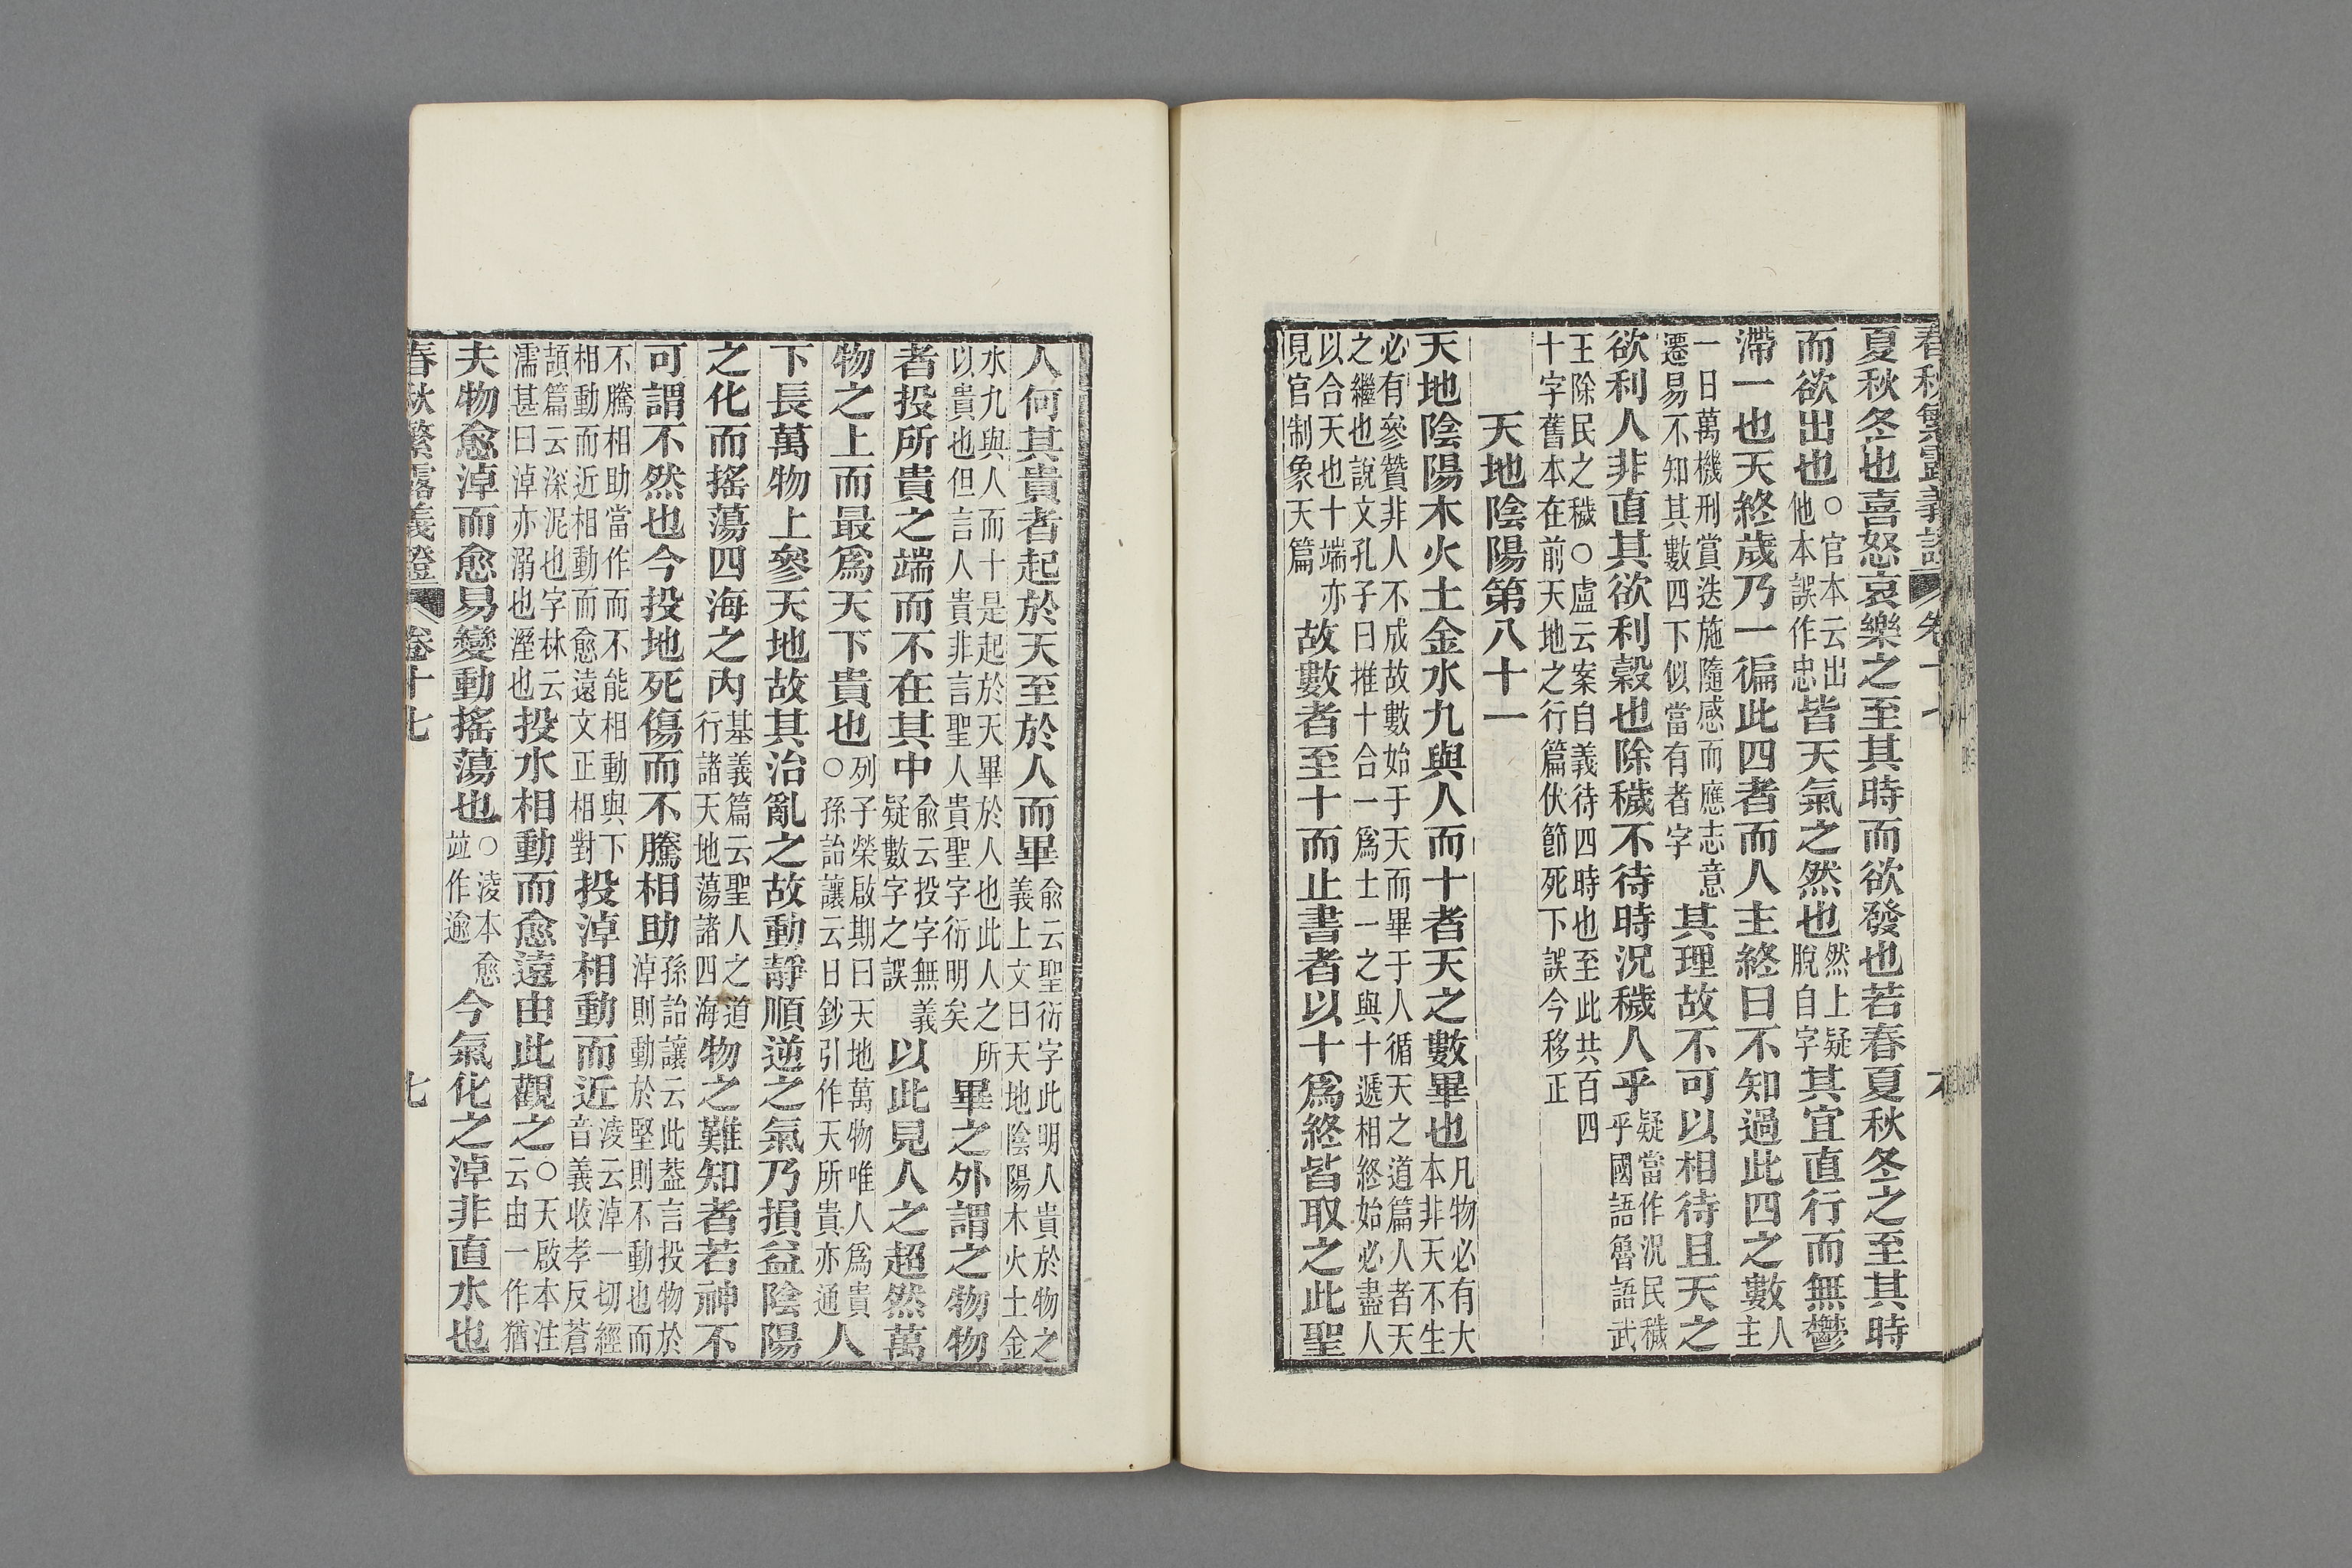 春秋繁露義證　卷十七　六
夏秋冬也喜怒哀樂之至其時而欲發也若春夏秋冬之至其時
而欲出也○官本云出他本誤作忠皆天氣之然也然上疑脫自字其宜直行而無鬱
滯一也天終歲乃一徧此四者而人主終日不知過此四之數人主
一日萬機刑賞迭施隨感而應志意遷易不知其數四下似當有者字其理故不可以相待且天之
欲利人非直其欲利穀也除穢不待時況穢人乎疑當作況民穢乎國語魯語武
王除民之穢○盧云案自義待四時也至此共百四十字舊本在前天地之行篇伏節死下誤今移正
天地陰陽第八十一
天地陰陽木火土金水九與人而十者天之數畢也凡物必有大本非天不生
必有參贊非人不成故數始于天而畢于人循天之道篇人者天之繼也說文孔子曰推十合一爲士一之與十遞相終始必盡人
以合天也十端亦見官制象天篇故數者至十而止書者以十爲終皆取之此聖
人何其貴者起於天至於人而畢俞云聖衍字此明人貴於物之義上文曰天地陰陽木火土金
水九與人而十是起於天畢於人也此人之所以貴也但言人貴非言聖人貴聖字衍明矣畢之外謂之物物
者投所貴之端而不在其中俞云投字無義疑數字之誤以此見人之超然萬
物之上而最爲天下貴也列子榮啟期曰天地萬物唯人爲貴○孫詒讓云日鈔引作天所貴亦通人
下長萬物上參天地故其治亂之故動靜順逆之氣乃損益陰陽
之化而搖蕩四海之內基義篇云聖人之道行諸天地蕩諸四海物之難知者若神不
可謂不然也今投地死傷而不騰相助孫詒讓云此葢言投物於淖則動於堅則不動也而
不騰相助當作而不能相動與下相動而近相動而愈遠文正相對投淖相動而近淩云淖一切經音義收孝反蒼
頡篇云深泥也字林云濡甚曰淖亦溺也溼也投水相動而愈遠由此觀之○天啟本注云由一作猶
夫物愈淖而愈易變動搖蕩也○淩本愈竝作逾今氣化之淖非直水也
春秋繁露義證　卷十七　七